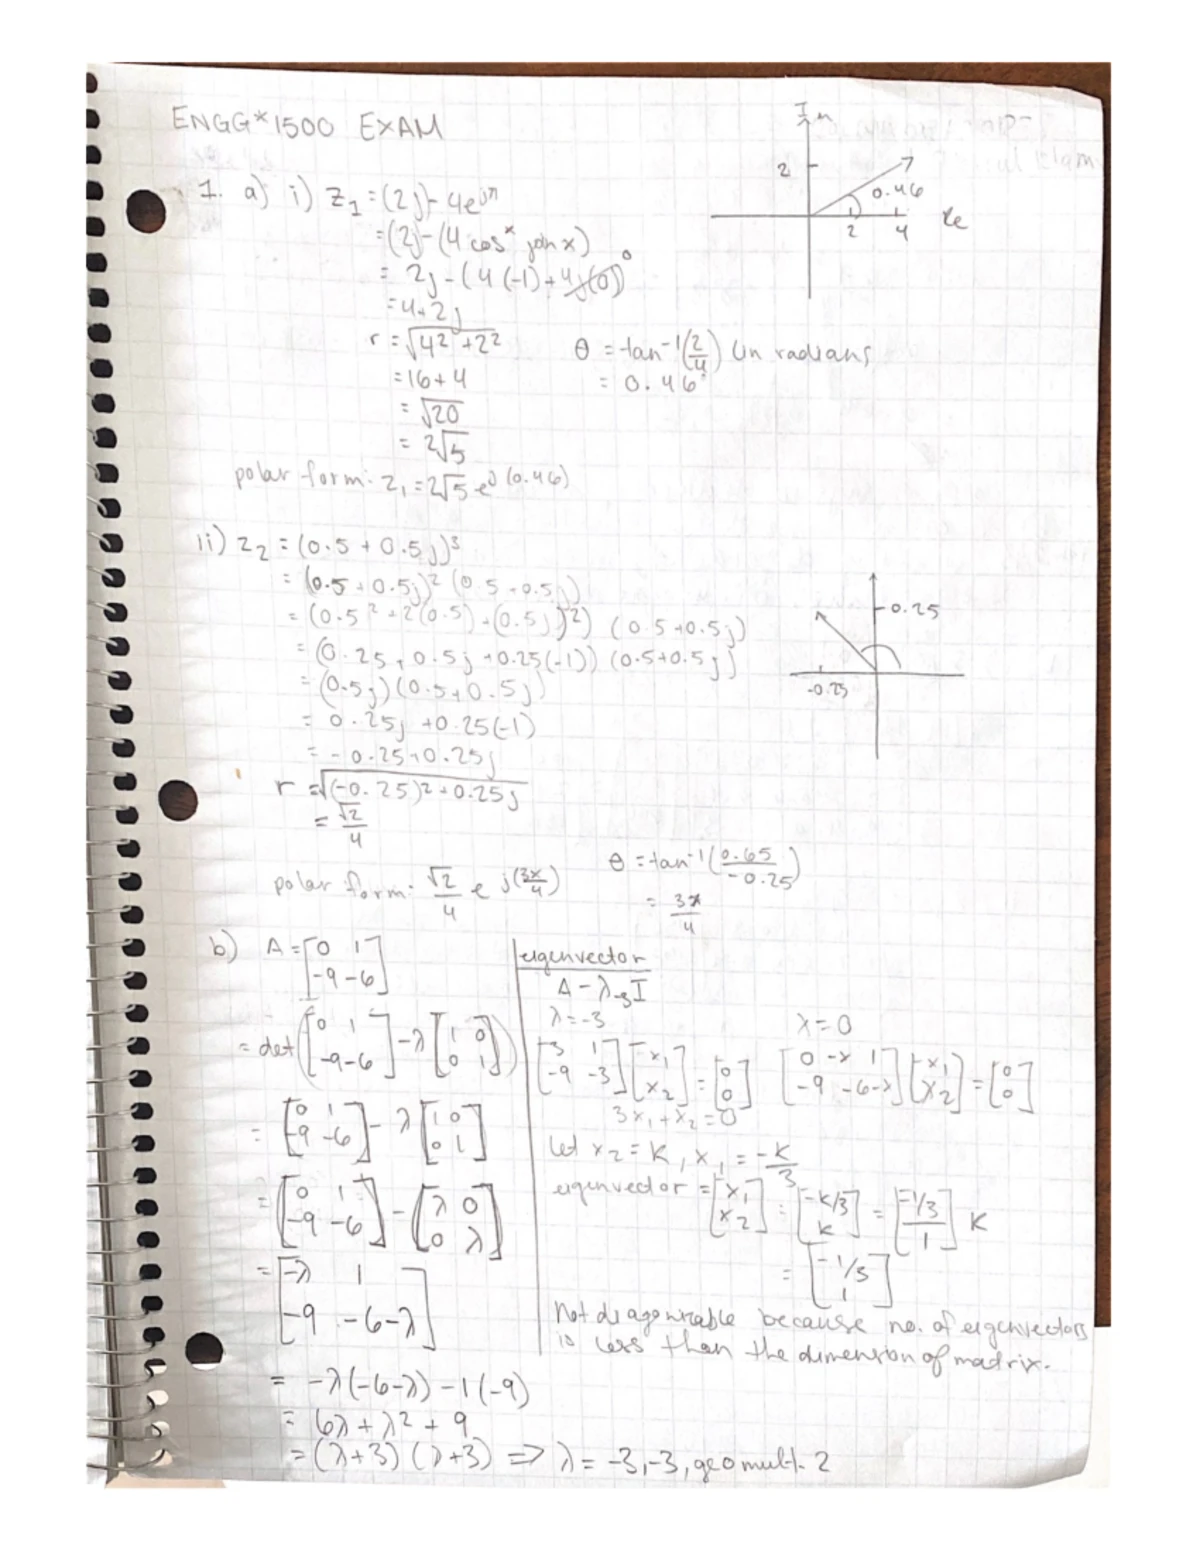 ENGG*1500 EXAM
Im
2
0.46
2 4
Re
1. a) i) z₁ = (2j) - 4e^jπ
= (2j - (4 cos^x join x)
= 2j - (4(-1) + 4j(0)) 0
= 4+2j
r = √4² + 2²
= 16+4
= √20
= 2√5
θ = tan⁻¹(2/4) (in radians)
= 0.46
polar form: z₁ = 2√5 e^j(0.46)
ii) z₂ = (0.5 + 0.5j)³
= (0.5 + 0.5j)² (0.5 + 0.5j)
= (0.5² + 2(0.5) + (0.5j)²) (0.5+0.5j)
= (0.25 + 0.5j + 0.25(-1)) (0.5+0.5j)
= (0.5j)(0.5+0.5j)
= 0.25j + 0.25(-1)
= -0.25+0.25j
r = √(-0.25)² + 0.25j
= √2/4
0.25
-0.25
θ = tan⁻¹(0.65/-0.25)
= 3π/4
polar form: √2/4 e^j(3π/4)
b) A = [0 1
-9 -6]
= det([0 1; -9 -6] - λ[1 0; 0 1])
= [0 1; -9 -6] - λ[1 0; 0 1]
= [0 1; -9 -6] - [λ 0; 0 λ]
= [-λ 1
-9 -6-λ]
= -λ(-6-λ) - 1(-9)
= 6λ + λ² + 9
= (λ+3)(λ+3) => λ = -3,-3, geo mult. 2
eigenvector
A - λ₋₃I
λ = -3
[3 1; -9 -3][x₁; x₂] = [0; 0]
3x₁ + x₂ = 0
λ = 0
[0-λ 1; -9 -6-λ][x₁; x₂] = [0; 0]
Let x₂ = K, x₁ = -K/3
eigenvector = [x₁; x₂] = [-K/3; K] = [-1/3; 1] K
= [-1/3; 1]
Not diagonizable because no. of eigenvectors
is less than the dimension of matrix.